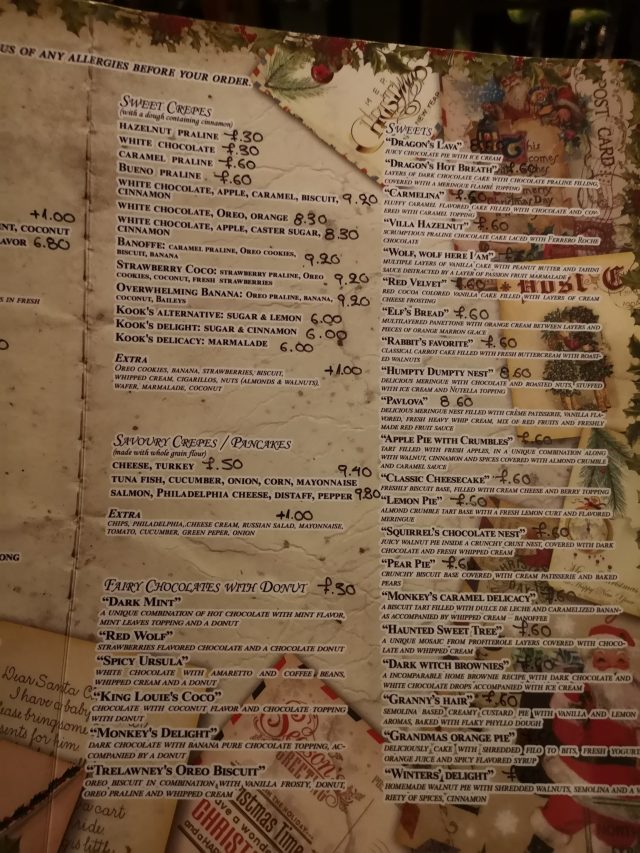 US OF ANY ALLERGIES BEFORE YOUR ORDER.
+1.00
NT, COCONUT
AVOR 6.80
S IN FRESH
ONG
SWEET CREPES
(with a dough containing cinnamon)
HAZELNUT PRALINE £.30
WHITE CHOCOLATE £.30
CARAMEL PRALINE £.60
BUENO PRALINE £.60
WHITE CHOCOLATE, APPLE, CARAMEL, BISCUIT, 9.20
CINNAMON
WHITE CHOCOLATE, OREO, ORANGE 8.30
WHITE CHOCOLATE, APPLE, CASTER SUGAR, 8.30
CINNAMON
BANOFFE: CARAMEL PRALINE, OREO COOKIES,
BISCUIT, BANANA 9.20
STRAWBERRY COCO: STRAWBERRY PRALINE, OREO
COOKIES, COCONUT, FRESH STRAWBERRIES 9.20
OVERWHELMING BANANA: OREO PRALINE, BANANA,
COCONUT, BAILEYS 9.20
KOOK'S ALTERNATIVE: SUGAR & LEMON 6.00
KOOK'S DELIGHT: SUGAR & CINNAMON 6.00
KOOK'S DELICACY: MARMALADE 6.00
EXTRA +1.00
OREO COOKIES, BANANA, STRAWBERRIES, BISCUIT,
WHIPPED CREAM, CIGARILLOS, NUTS (ALMONDS & WALNUTS),
WAFER, MARMALADE, COCONUT
SAVOURY CREPES / PANCAKES
(made with whole grain flour)
CHEESE, TURKEY £.50
TUNA FISH, CUCUMBER, ONION, CORN, MAYONNAISE 9.40
SALMON, PHILADELPHIA CHEESE, DISTAFF, PEPPER 9.80
EXTRA +1.00
CHIPS, PHILADELPHIA, CHEESE CREAM, RUSSIAN SALAD, MAYONNAISE,
TOMATO, CUCUMBER, GREEN PEPER, ONION
FAIRY CHOCOLATES WITH DONUT £.30
"DARK MINT"
A UNIQUE COMBINATION OF HOT CHOCOLATE WITH MINT FLAVOR,
MINT LEAVES TOPPING AND A DONUT
"RED WOLF"
STRAWBERRIES FLAVORED CHOCOLATE AND A CHOCOLATE DONUT
"SPICY URSULA"
WHITE CHOCOLATE WITH AMARETTO AND COFFEE BEANS,
WHIPPED CREAM AND A DONUT
"KING LOUIE'S COCO"
CHOCOLATE WITH COCONUT FLAVOR AND CHOCOLATE TOPPING
WITH DONUT
"MONKEY'S DELIGHT"
DARK CHOCOLATE WITH BANANA PURE CHOCOLATE TOPPING, AC-
COMPANIED BY A DONUT
"TRELAWNEY'S OREO BISCUIT"
OREO BISCUIT IN COMBINATION WITH VANILLA FROSTY, DONUT,
OREO PRALINE AND WHIPPED CREAM
SWEETS
"DRAGON'S LAVA"
JUICY CHOCOLATE PIE WITH ICE CREAM
"DRAGON'S HOT BREATH" £.60
LAYERS OF DARK CHOCOLATE CAKE WITH CHOCOLATE PRALINE FILLING,
COVERED WITH A MERINGUE FLAMBE TOPPING
"CARMELINA" £.60
FLUFFY CARAMEL FLAVORED CAKE FILLED WITH CHOCOLATE AND COV-
ERED WITH CARAMEL TOPPING
"VILLA HAZELNUT" £.60
SCRUMPTIOUS PRALINE CHOCOLATE CAKE LACED WITH FERRERO ROCHE
CHOCOLATE
"WOLF, WOLF HERE I'AM" £.60
MULTIPLE LAYERS OF VANILLA CAKE WITH PEANUT BUTTER AND TAHINI
SAUCE DISTRACTED BY A LAYER OF PASSION FRUIT MARMALADE
"RED VELVET" £.60
RED COCOA COLORED VANILLA CAKE FILLED WITH LAYERS OF CREAM
CHEESE FROSTING
"ELF'S BREAD" £.60
MULTILAYERED PANETTONE WITH ORANGE CREAM BETWEEN LAYERS AND
PIECES OF ORANGE MARRON GLACE
"RABBIT'S FAVORITE" £.60
CLASSICAL CARROT CAKE FILLED WITH FRESH BUTTERCREAM WITH ROAST-
ED WALNUTS
"HUMPTY DUMPTY NEST" 8.60
DELICIOUS MERINGUE WITH CHOCOLATE AND ROASTED NUTS, STUFFED
WITH ICE CREAM AND NUTELLA TOPPING
"PAVLOVA" 8.60
DELICIOUS MERINGUE NEST FILLED WITH CRÈME PATISSERIE, VANILLA FLA-
VORED, FRESH HEAVY WHIP CREAM, MIX OF RED FRUITS AND FRESHLY
MADE RED FRUIT SAUCE
"APPLE PIE WITH CRUMBLES" £.60
TART FILLED WITH FRESH APPLES, IN A UNIQUE COMBINATION ALONG
WITH WALNUT, CINNAMON AND SPICES COVERED WITH ALMOND CRUMBLE
AND CARAMEL SAUCE
"CLASSIC CHEESECAKE" £.60
FRESHLY BISCUIT BASE, FILLED WITH CREAM CHEESE AND BERRY TOPPING
"LEMON PIE" £.50
ALMOND CRUMBLE TART BASE WITH A FRESH LEMON CURT AND FLAVORED
MERINGUE
"SQUIRREL'S CHOCOLATE NEST" £.60
JUICY WALNUT PIE INSIDE A CRUNCHY CRUST NEST, COVERED WITH DARK
CHOCOLATE AND FRESH WHIPPED CREAM
"PEAR PIE" £.6
CRUNCHY BISCUIT BASE COVERED WITH CREAM PATISSERIE AND BAKED
PEARS
"MONKEY'S CARAMEL DELICACY" £.60
A BISCUIT TART FILLED WITH DULCE DE LECHE AND CARAMELIZED BANAN-
AS ACCOMPANIED BY WHIPPED CREAM – BANOFFEE
"HAUNTED SWEET TREE" £.60
A UNIQUE MOSAIC FROM PROFITEROLE LAYERS COVERED WITH CHOCO-
LATE AND WHIPPED CREAM
"DARK WITCH BROWNIES" £.60
A INCOMPARABLE HOME BROWNIE RECIPE WITH DARK CHOCOLATE AND
WHITE CHOCOLATE DROPS ACCOMPANIED WITH ICE CREAM
"GRANNY'S HAIR" £.60
SEMOLINA BASED CREAMY CUSTARD PIE WITH VANILLA AND LEMON
AROMAS, BAKED WITH FLAKY PHYLLO DOUGH
"GRANDMAS ORANGE PIE"
DELICIOUSLY CAKE WITH SHREDDED FILO TO BITS, FRESH YOGURT
ORANGE JUICE AND SPICY FLAVORED SYRUP
"WINTERS' DELIGHT"
HOMEMADE WALNUT PIE WITH SHREDDED WALNUTS, SEMOLINA AND A V
RIETY OF SPICES, CINNAMON
MERRY
Christmas
NEW YEAR
POST CARD
Dear Santa C
I have a bab
lease bring some
ents for him
a cart